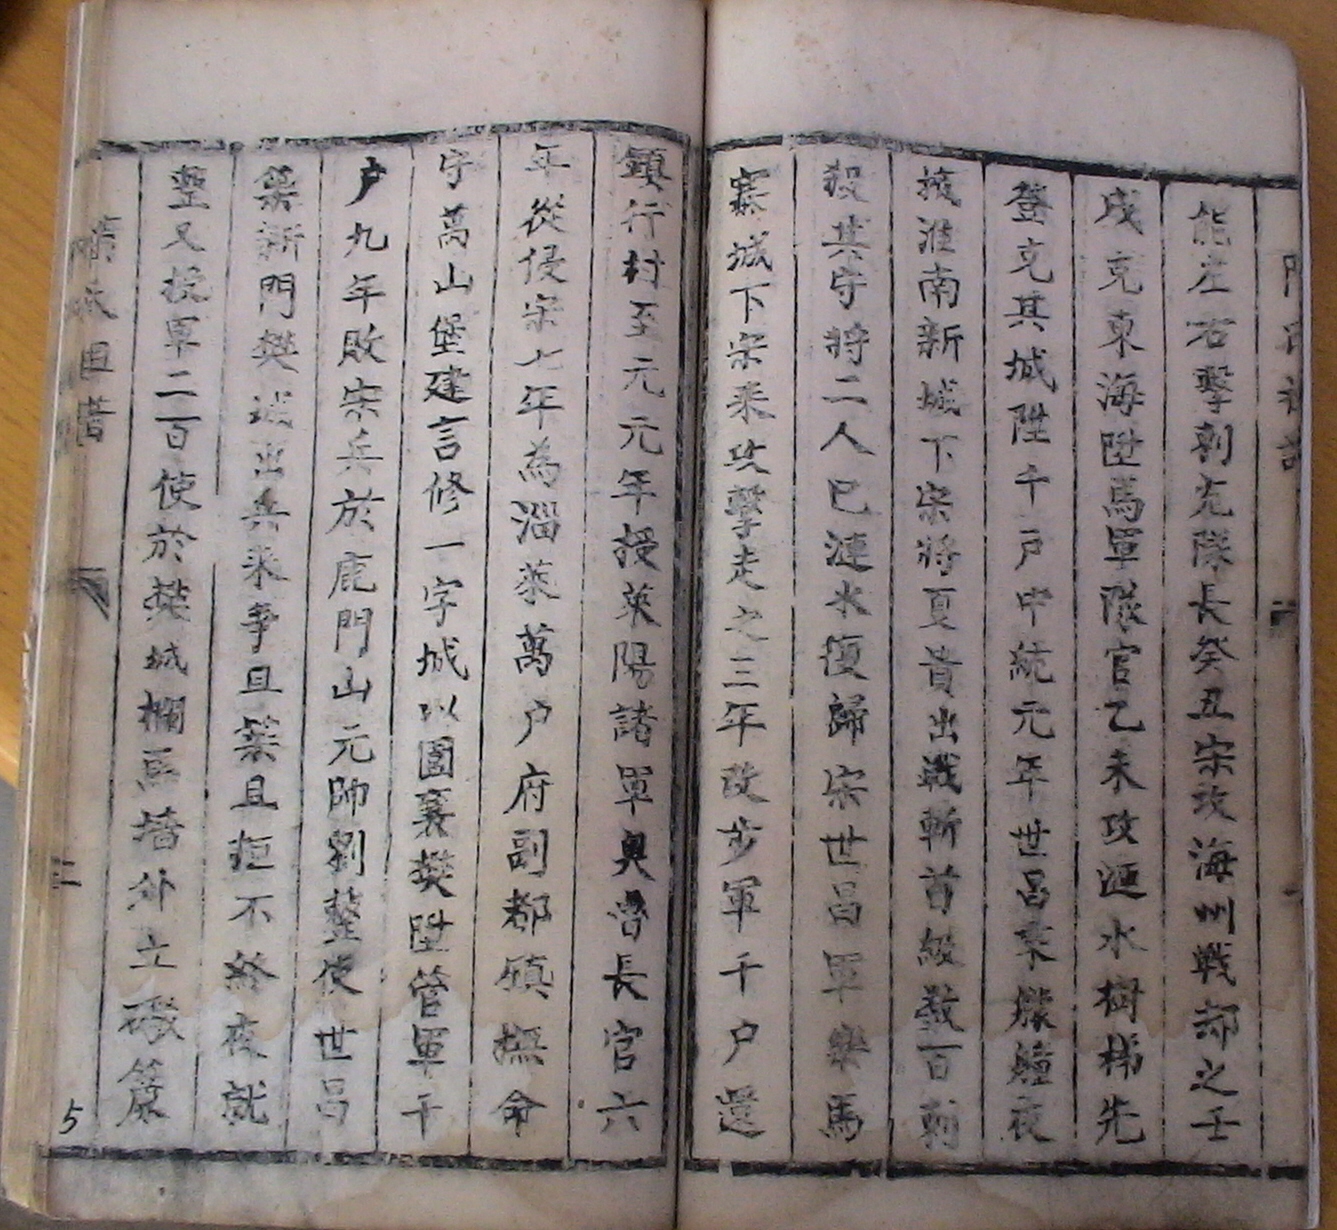 能左右擊刺充隊長癸丑宋攻海州戰却之壬
戌克東海陞馬軍隊官乙未攻漣水樹梯先
登克其城陞千戶中統元年世昌乘艨艟夜
援淮南新城下宋將夏貴出戰斬首級數百刺
殺其守將二人已漣水復歸宋世昌軍樂馬
寨城下宋來攻擊走之三年改步軍千戶還
鎮行村至元元年授萊陽諸軍奧魯長官六
年從侵宋七年為淄萊萬戶府副都鎮撫命
守萬山堡建言修一字城以圍襄樊陞管軍千
戶九年敗宋兵於鹿門山元帥劉整使世昌
築新門樊城出兵來爭且築且拒不終夜就
整又授軍二百使於樊城欄馬墻外立礮簾
隋氏通譜
三
5